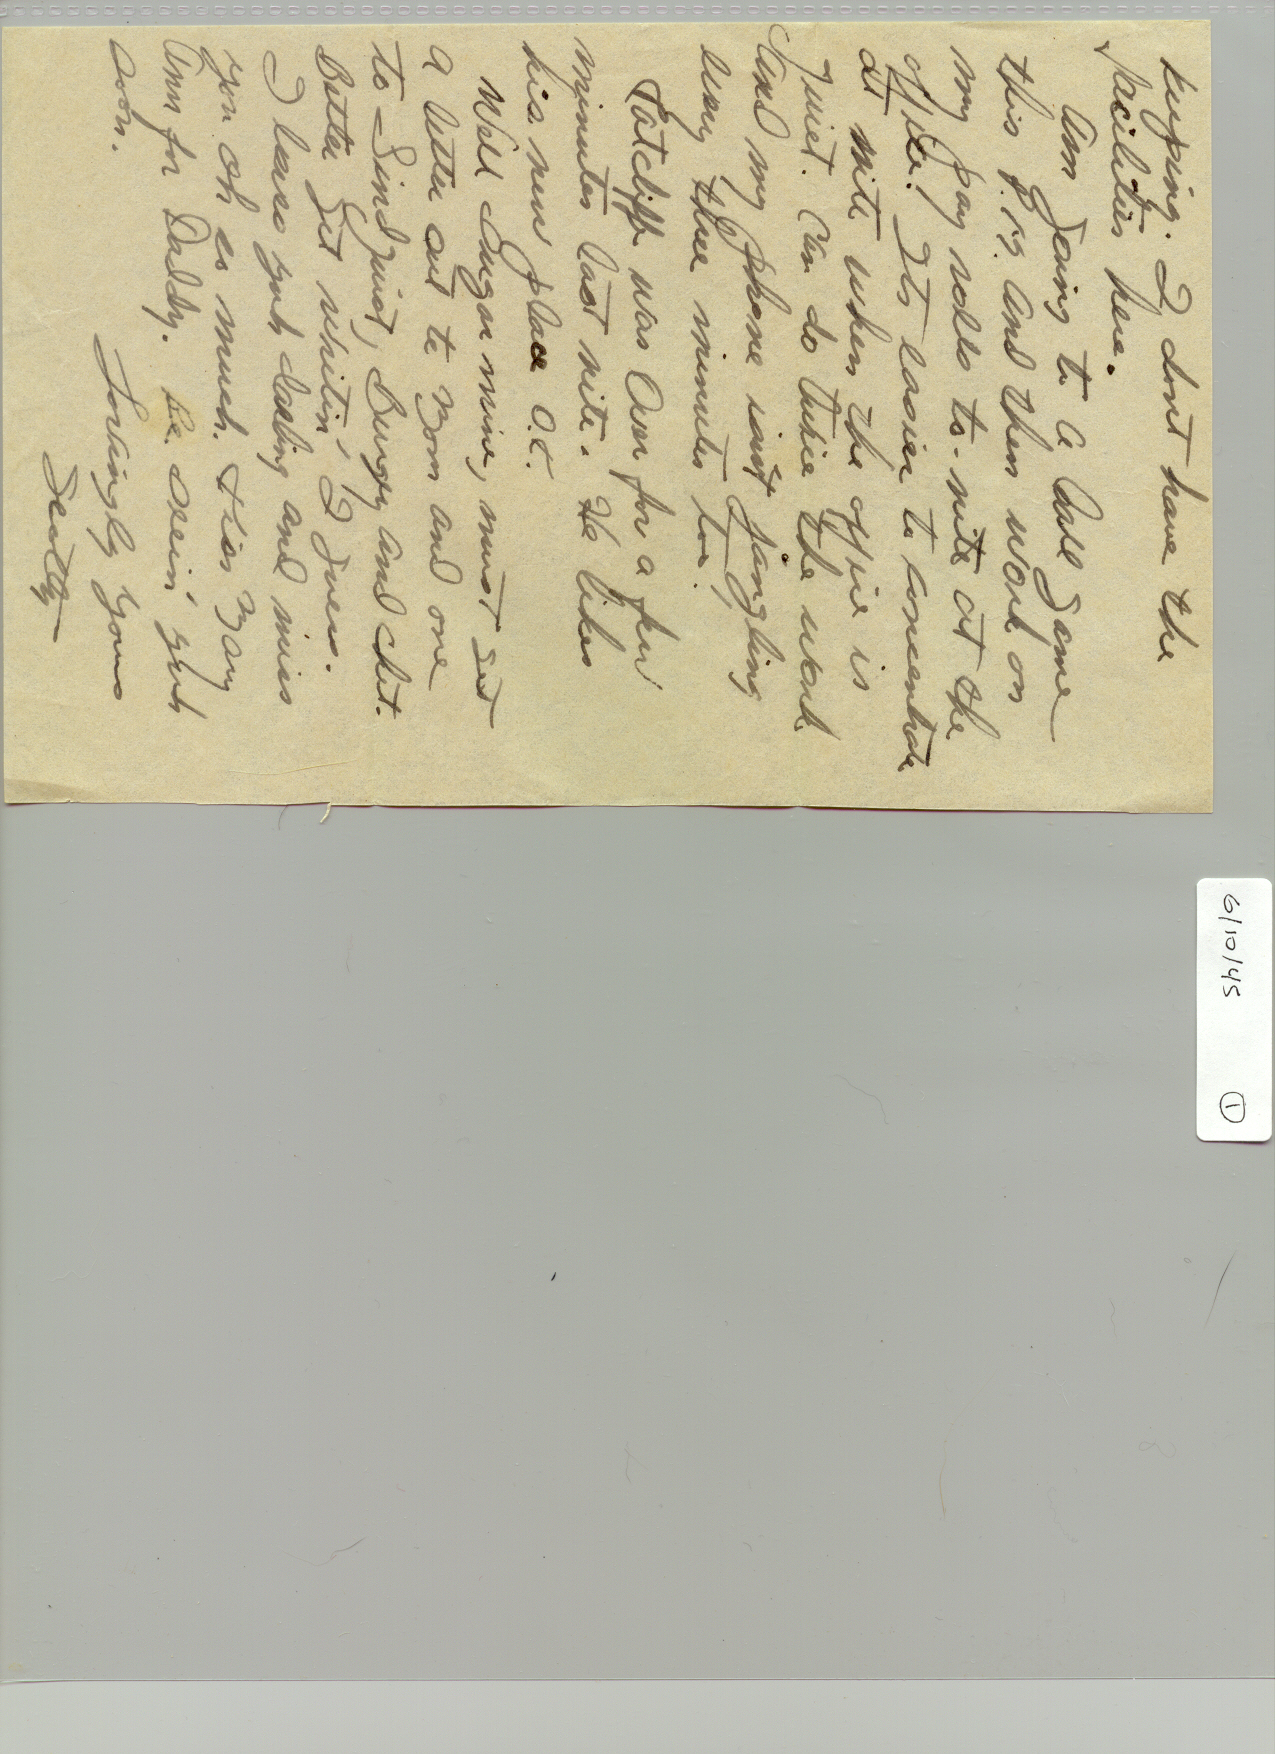 keeping. I dont have the
facilities here.
Am going to a ball game
this p.m. and then work on
my pay rolls to-nite at the
office. Its easier to concentrate
at nite when the office is
quiet. Can do twice the work
and my phone isnt jangling
every three minutes too.
Ratcliff was over for a few
minutes last nite. He likes
his new place O.K.
Well Sugar mine, must get
a letter out to Mom and one
to Lindquist, Bungy and Chet.
Better git writin', I guess.
I loves yuh darling and miss
you oh so much. Kiss Mary
Ann for Daddy. Be seein' yuh
soon.
Lovingly yours
Scotty
6/10/45
①